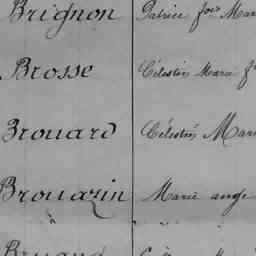 Brignon Patrice fois Mar
Brosse Célestin Marie f
Brouard Célestin Mar
Brouazin Marie ange